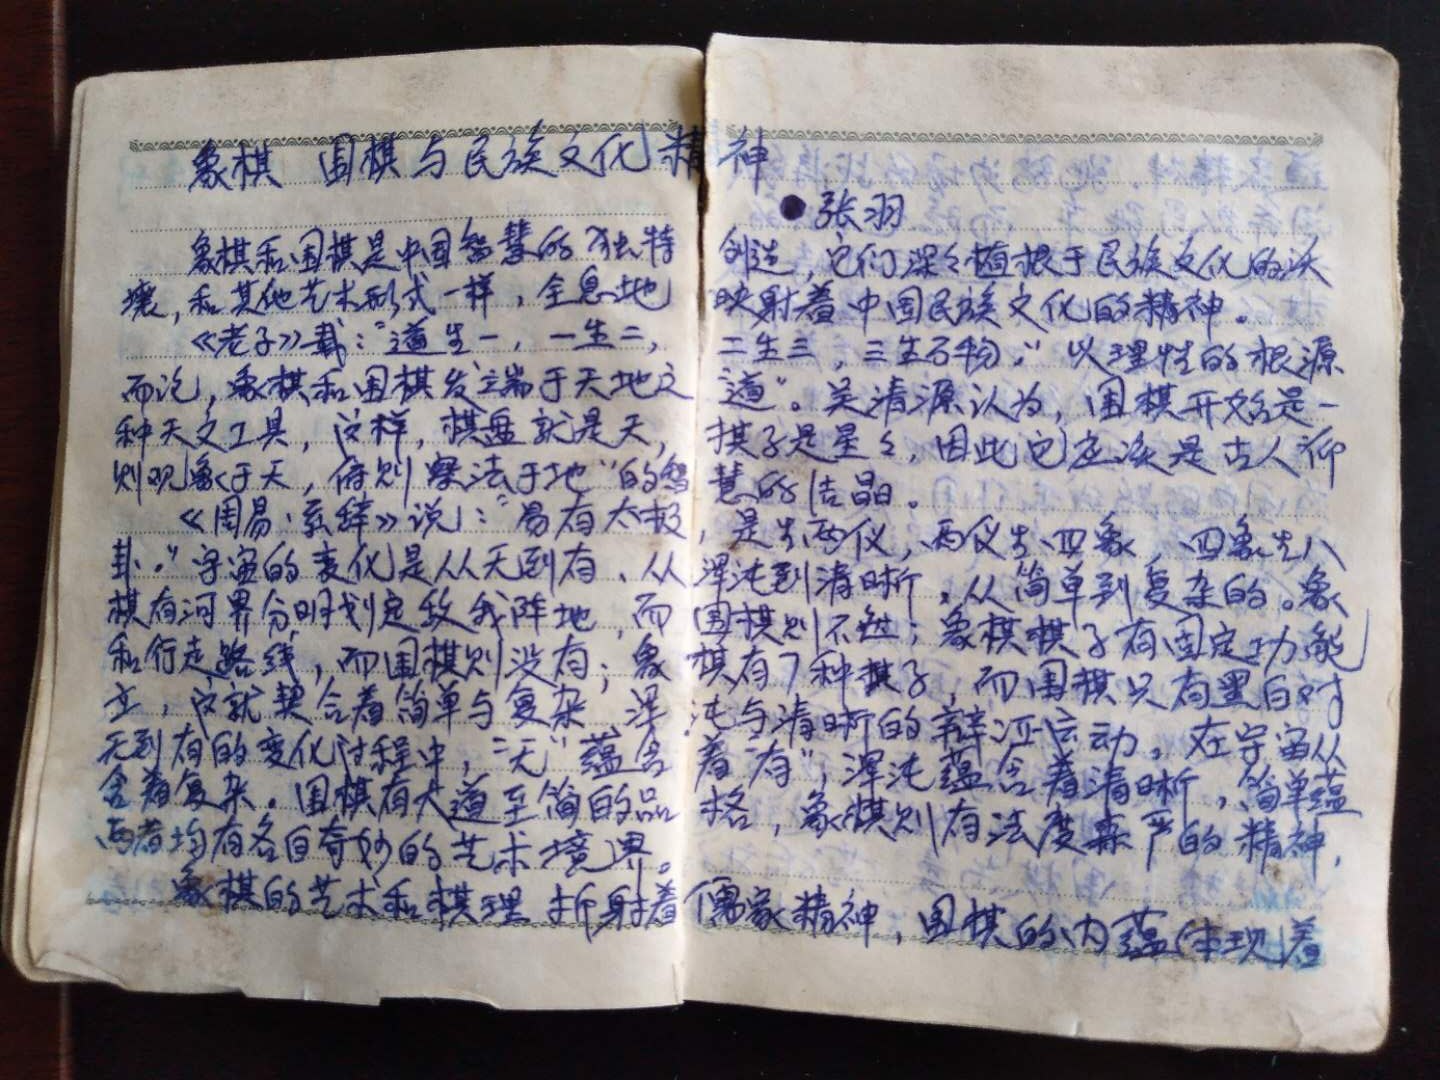 象棋 围棋与民族文化精神
●张羽
象棋和围棋是中国智慧的独特创造，它们深々植根于民族文化的沃
壤，和其他艺术形式一样，全息地映射着中国民族文化的精神。
《老子》载：“道生一，一生二，二生三，三生万物。”以理性的根源
而论，象棋和围棋发端于天地之道”。吴清源认为，围棋开始是一
种天文工具，这样，棋盘就是天，棋子是星々，因此它应该是古人“仰
则观象于天，俯则察法于地”的智慧的结晶。
《周易·系辞》说：“易有太极，是生两仪，两仪生四象，四象生八
卦。”宇宙的变化是从无到有、从浑沌到清晰，从简单到复杂的。象
棋有河界分明划定敌我阵地，而围棋则不然；象棋棋子有固定功能
和行走路线，而围棋则没有；象棋有7种棋子，而围棋只有黑白对
立，这就契合着简单与复杂，浑沌与清晰的辩证运动。在宇宙从
无到有的变化过程中，“无”蕴含着“有”，浑沌蕴含着清晰，简单蕴
含着复杂。围棋有大道至简的品格，象棋则有法度森严的精神，
两者均有各自奇妙的艺术境界。
象棋的艺术和棋理折射着儒家精神，围棋的内蕴体现着